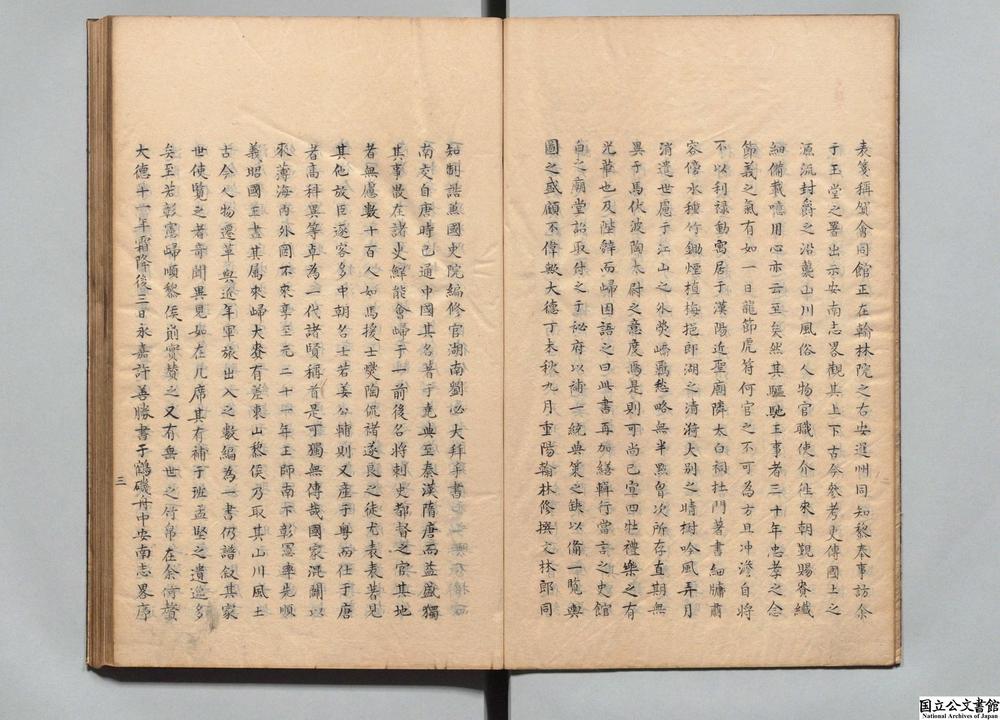 表箋稱賀會同館正在翰林院之右安暹州同知黎奉事訪余
于玉堂之署出示安南志畧觀其上下古今叅考史傳國土之
源流封爵之沿革山川風俗人物官職使介徃來朝覲賜賚纎
細備載噫用心亦云至矣然其驅馳王事者三十年忠孝之念
節義之氣有如一日龍節虎符何官之不可為方且冲澹自將
不以利禄動寓居于漢陽近聖廟隣太白祠杜門著書細牗蕭
容傍水種竹鋤煙植梅挹郎湖之清漪大别之晴樹吟風弄月
消遣世慮于江山之外榮嶠覊愁略無半點胷次所存直期無
異于馬伏波陶太尉之意度為是則可尚已宣四壮禮樂之有
光華也及陛辭而歸因語之曰此書再加繕輯行當言之史館
白之廟堂詔取付之于祕府以補一統典策之缺以備一覽輿
圖之盛顧不偉歟大德丁未秋九月重陽翰林修撰文林郎同
知制誥燕國史院編修官湖南劉必大拜手書
南交自唐時已通中國其名著于堯典至秦漢隋唐而益盛獨
其事散在諸史鮮能會歸于一前後名將刺史都督之官其地
者無慮數十百人如馬援士燮陶侃禇遂良之徒尤表表著見
其他放臣逐客多中朝名士若姜公輔則又産于粤而仕于唐
者高科異等卓為一代諸賢稱首是可獨無傳哉國家混闢以
來薄海内外罔不來享至元二十一年王師南下彰憲率先順
義昭國王盡其屬來歸大賚有差東山黎侯乃取其山川風土
古今人物遷革與近年軍旅出入之數編為一書仍譜叙其家
世使覽之者奇聞異見如在几席其有補于班孟堅之遺逸多
矣至若彰憲歸順黎侯前實贊之又有與世之竹帛在余脩贅
大德十一年霜降後三日永嘉許善勝書于鶴磯舟中安南志畧序
三
国立公文書館
National Archives of Japan